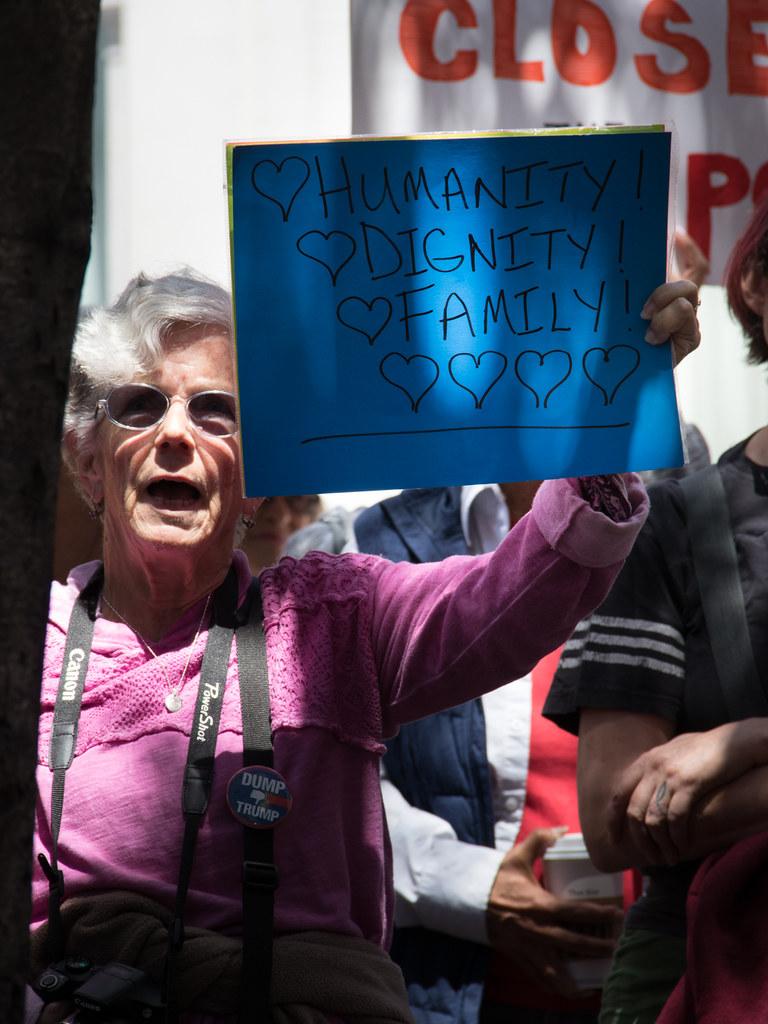 CLOSE
THE
PO
HUMANITY!
DIGNITY!
FAMILY!
Canon
PowerShot
DUMP
TRUMP
Canon